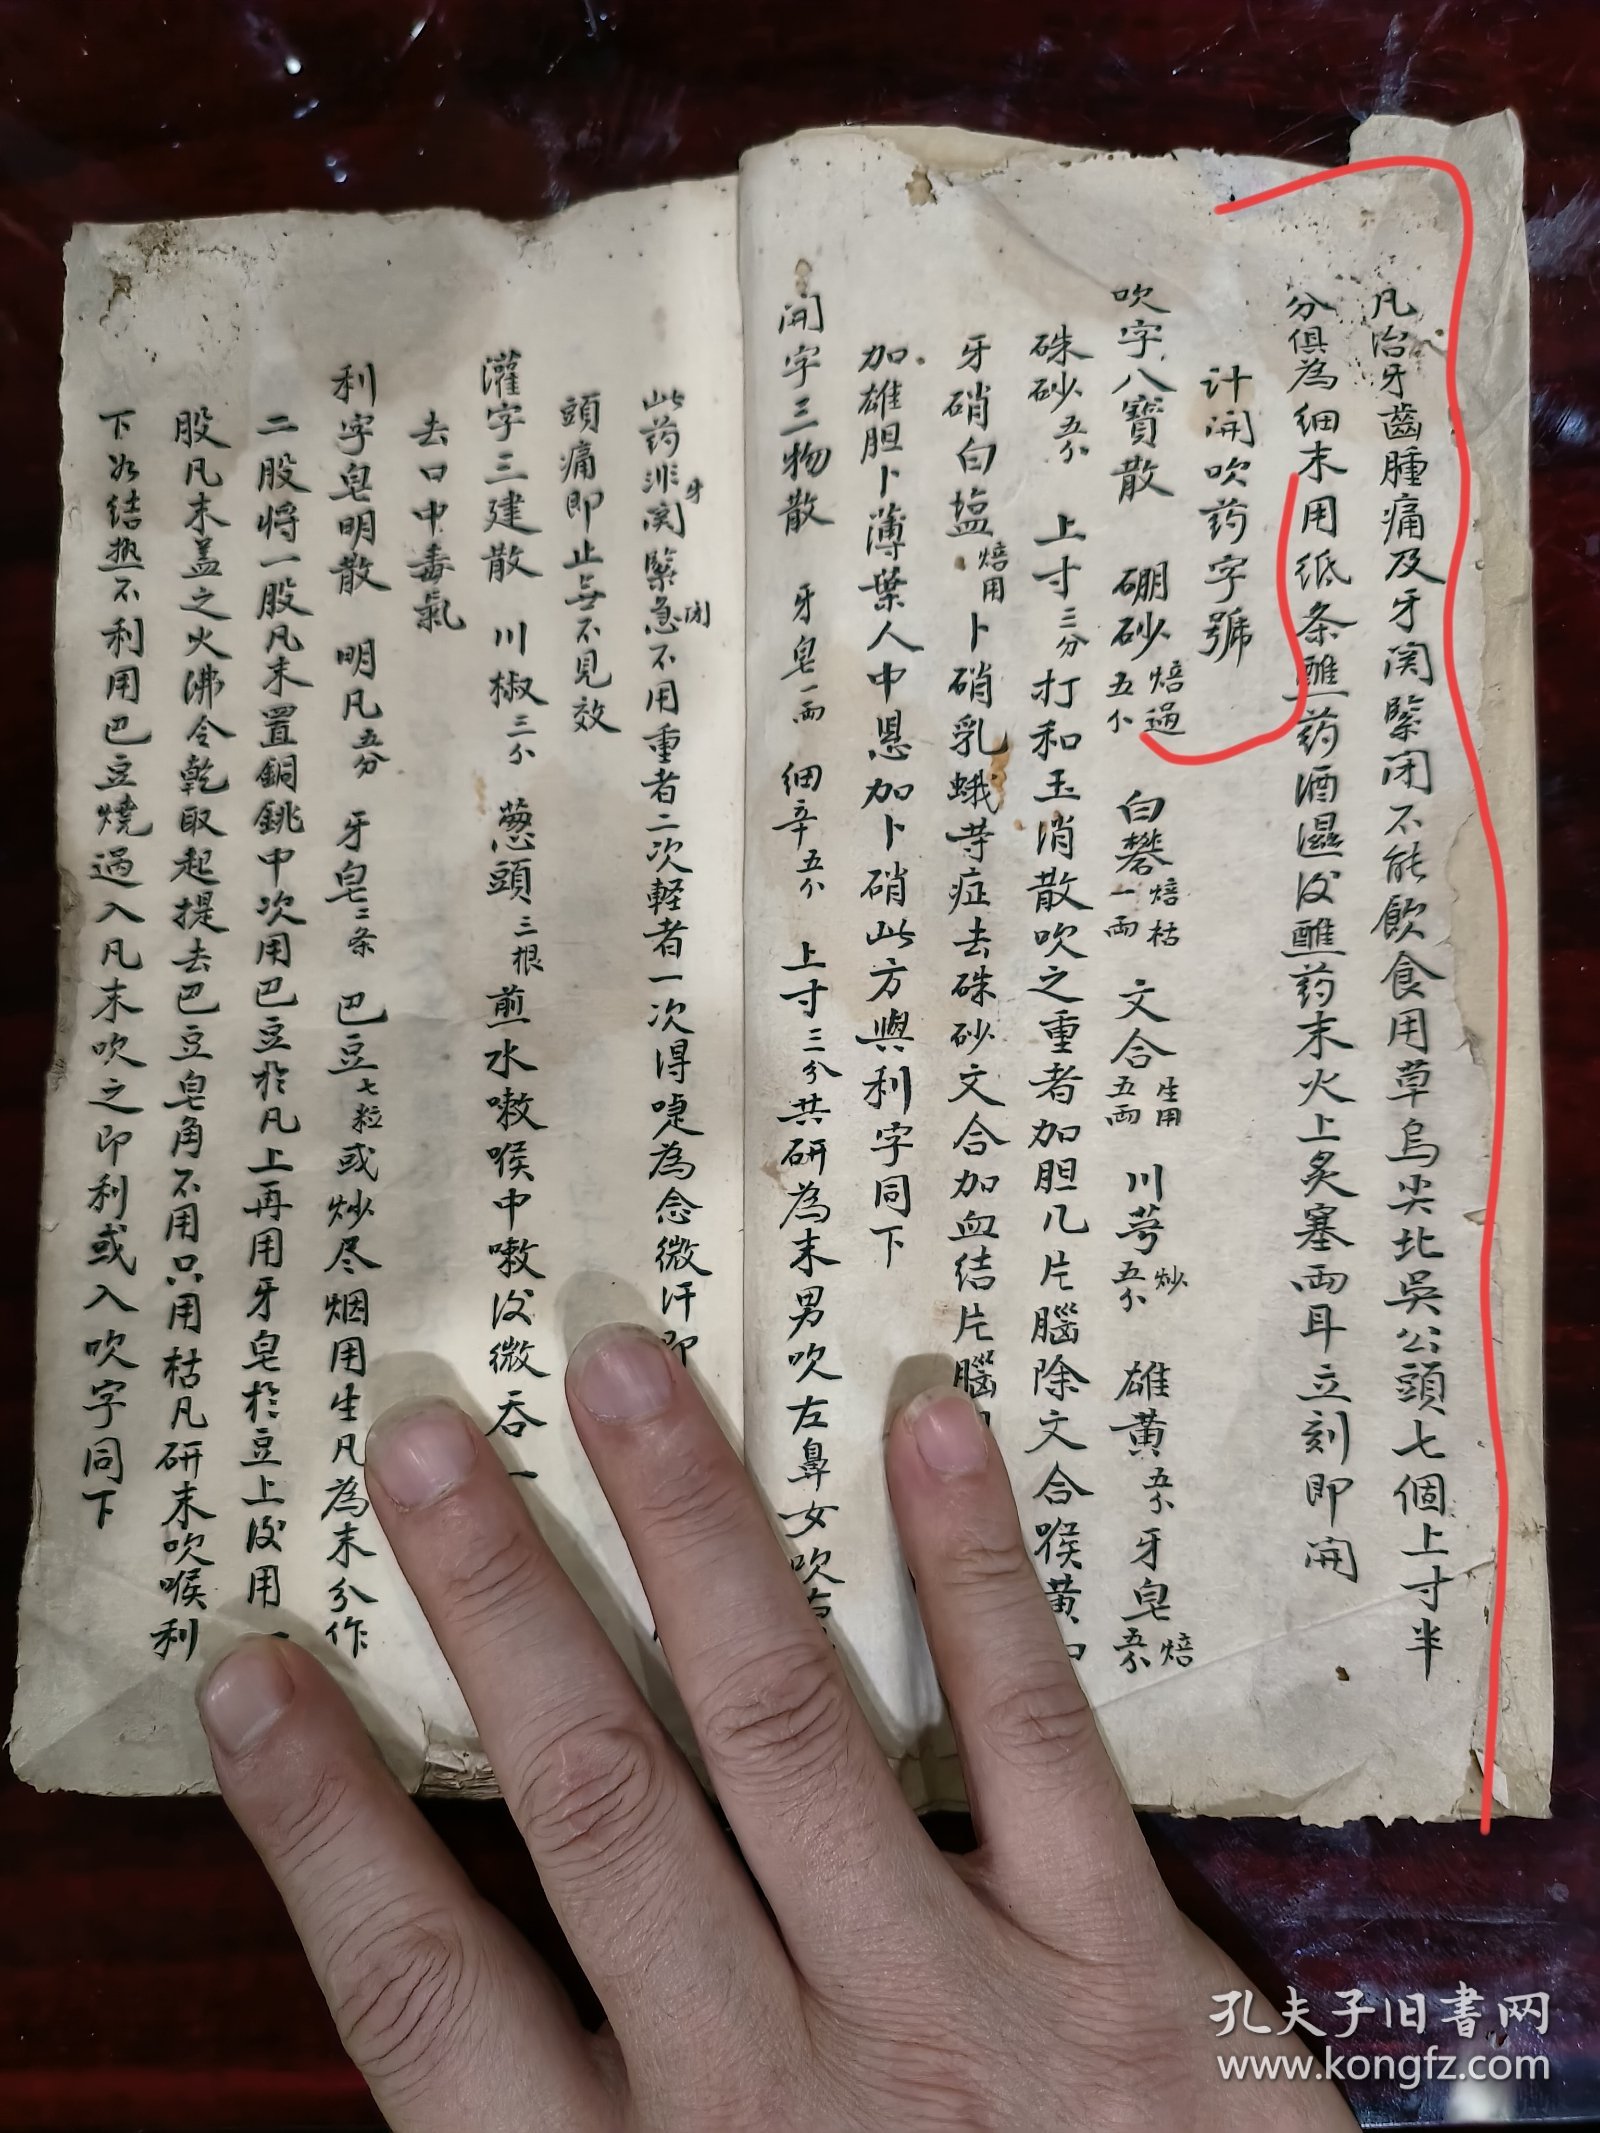 凡治牙齒腫痛及牙関緊闭不能飲食用草烏尖北吳公頭七個上寸半
分俱為细末用纸条蘸药酒濕後蘸药末火上炙塞両耳立刻即開
计開吹药字號
吹字八寳散 硼砂焙過五分 白礬焙枯一両 文合生用五両 川芎炒五分 雄黄五分 牙皂焙五分
硃砂五分 上寸三分打和玉消散吹之重者加胆几片片腦除文合喉黄
牙硝白塩焙用卜硝乳蛾等症去硃砂文合加血结片腦
加雄胆卜薄葉人中恩加卜硝此方與利字同下
開字三物散 牙皂一両 细辛五分 上寸三分共研為末男吹左鼻女吹
此药非牙関緊急闭不用重者二次輕者一次得嚏為念微汗即
頭痛即止無不見效
灌字三建散 川椒三分 葱頭三根煎水嗽喉中嗽後微吞一
去口中毒氣
利字皂明散 明凡五分 牙皂二条 巴豆七粒或炒尽烟用生凡為末分作
二股将一股凡末置銅銚中次用巴豆於凡上再用牙皂於豆上後用一
股凡末盖之火沸令乾取起提去巴豆皂角不用只用枯凡研末吹喉利
下如结热不利用巴豆燒過入凡末吹之即利或入吹字同下
孔夫子旧书网
www.kongfz.com